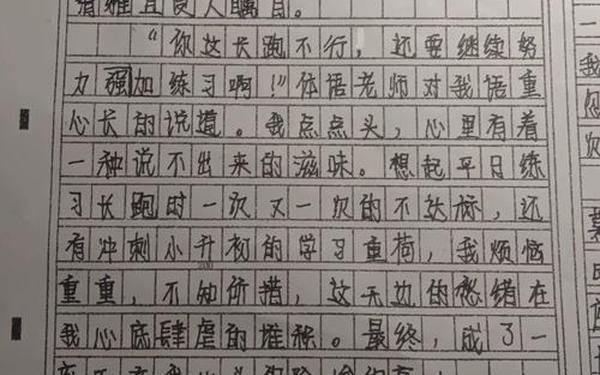 清雅且良人瞩目。
“你这长跑不行，还要继续努
力强加练习啊！”体语老师对我语重
心长的说道。我点点头，心里有着
一种说不出来的滋味。想起平日练
习长跑时一次又一次的不达标，还
有冲刺小升初的学习重荷，我烦恼
重重，不知所措，这无边的愁绪在
我心底肆虐的堆积。最终，成了一